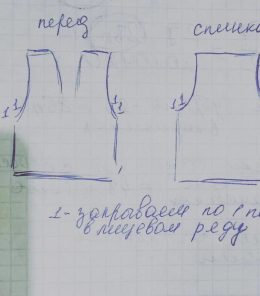 перед
спинка
1 1
1 1
1
1 - закрываем по 1 п
в лицевом ряду